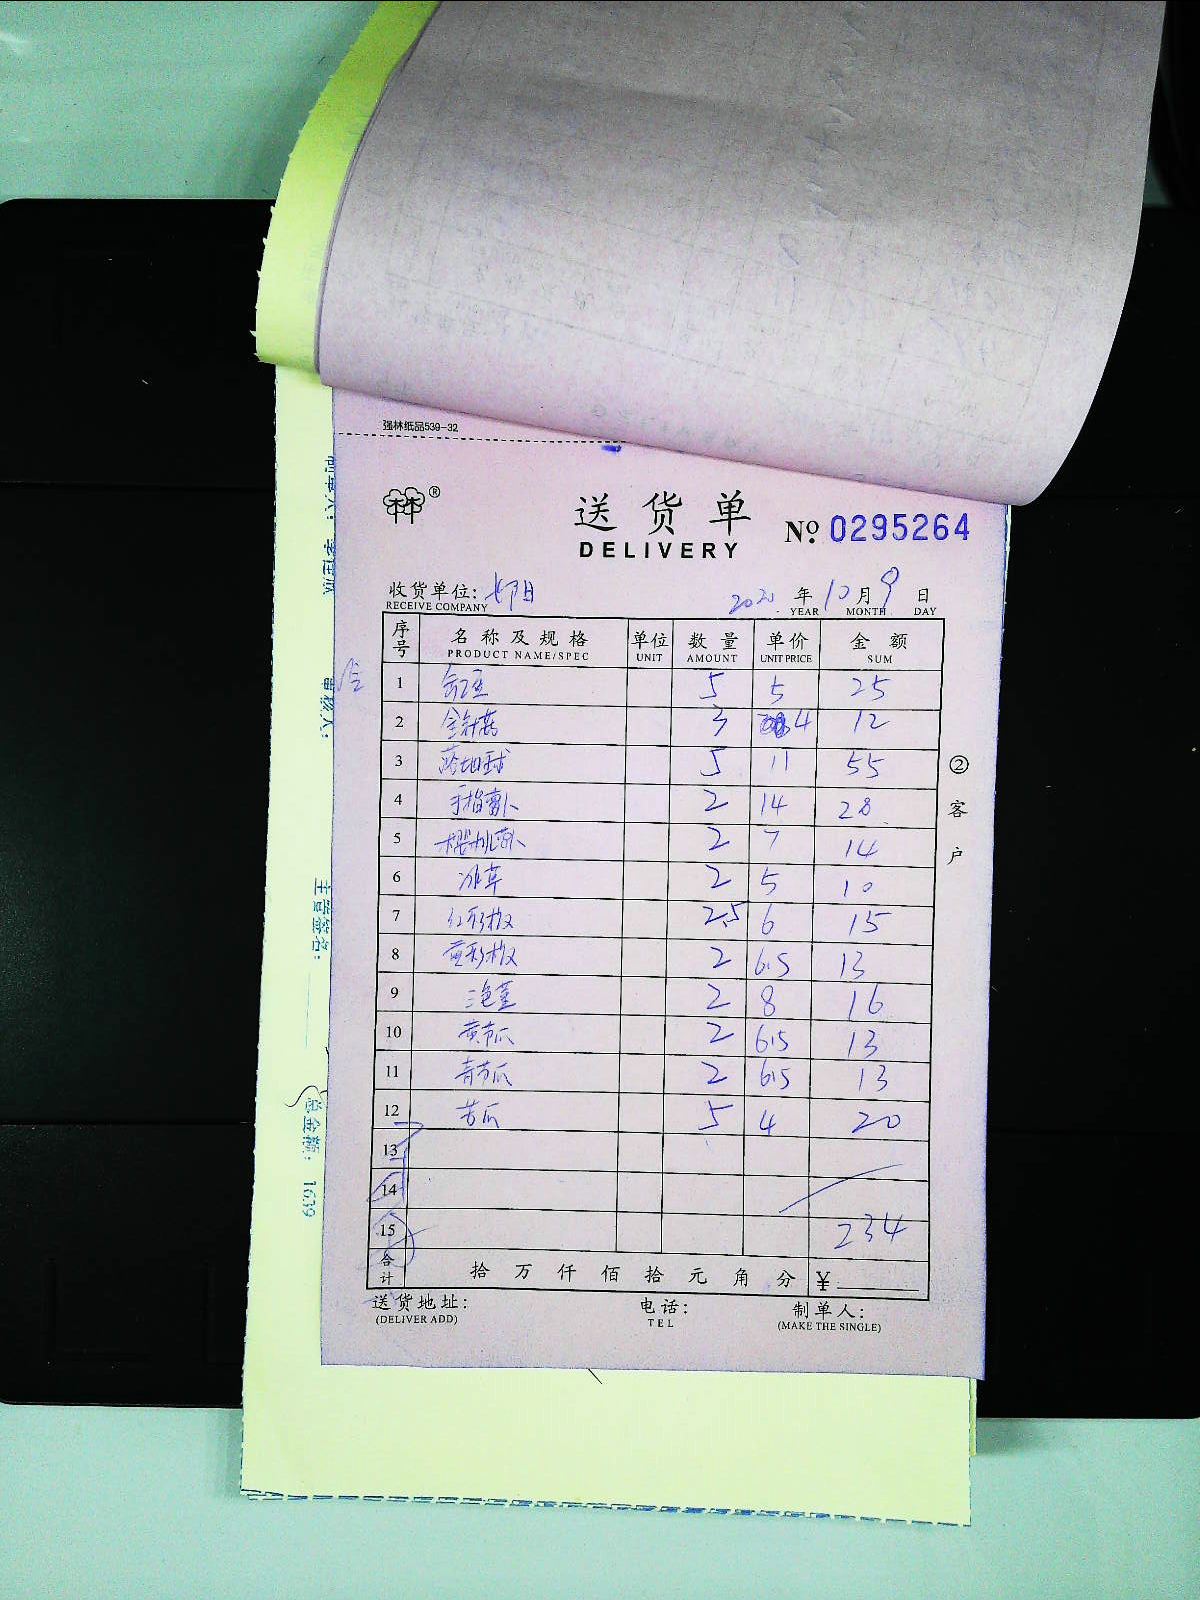 强林纸品539-32
®
送货单
DELIVERY
No 0295264
收货单位:
RECEIVE COMPANY
2020 年 10 月 9 日
YEAR MONTH DAY
序号 名称及规格 单位 数量 单价 金额
PRODUCT NAME/SPEC UNIT AMOUNT UNIT PRICE SUM
1 5 5 25
2 金针菇 3 4 12
3 5 11 55
4 手指萝卜 2 14 28
5 樱桃萝卜 2 7 14
6 冰草 2 5 10
7 红彩椒 2.5 6 15
8 黄彩椒 2 6.5 13
9 2 8 16
10 黄节瓜 2 6.5 13
11 青节瓜 2 6.5 13
12 苦瓜 5 4 20
13
14
15 234
合计 拾万仟佰拾元角分 ¥
送货地址: 电话: 制单人:
(DELIVER ADD) TEL (MAKE THE SINGLE)
②客户
主管签名:
总金额: 1639